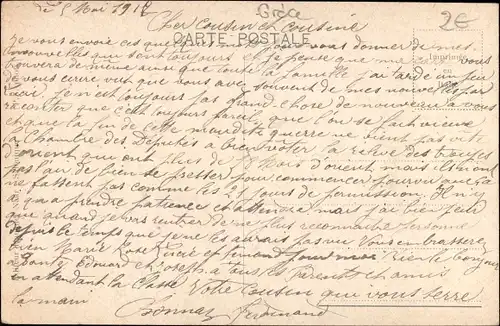 le 5 Mai 1918
Grèce
2€
Cher Cousin et Cousine
CARTE POSTALE
Je vous envoie ces quelques vous donner de mes
nouvelles qui sont toujours et je pense que vous
trouvera de même ainsi que toute la famille j'ai tardé un peu
de vous écrire mais vous avez souvent de mes nouvelles par
Je n'est toujours pas grand chose de nouveau à vous
raconter que c'est toujours pareil que l'on se fait vieux
et que la fin de cette maudite guerre ne vient pas vite
la Chambre des Députés a bien voter la relève des troupes
d'orient qui ont plus de 18 Mois d'orient mais ils n'ont
pas l'air de bien se presser pour commencer pourvu que sa
ne fassent pas comme les 21 jours de permission Il n'y
a qu'a prendre patience et attendre mais j'ai bien peur
que quand je vais rentrer de ne plus reconnaitre personne
depuis le temps que je ne les aurais pas vu Vous embrasserez
bien Marie Rose et Fernand pour moi Bien le bonjour
à Edouard et Joseph a tous les parents et amis
en attendant la Classe Votre Cousin qui vous serre
la main
Ferdinand